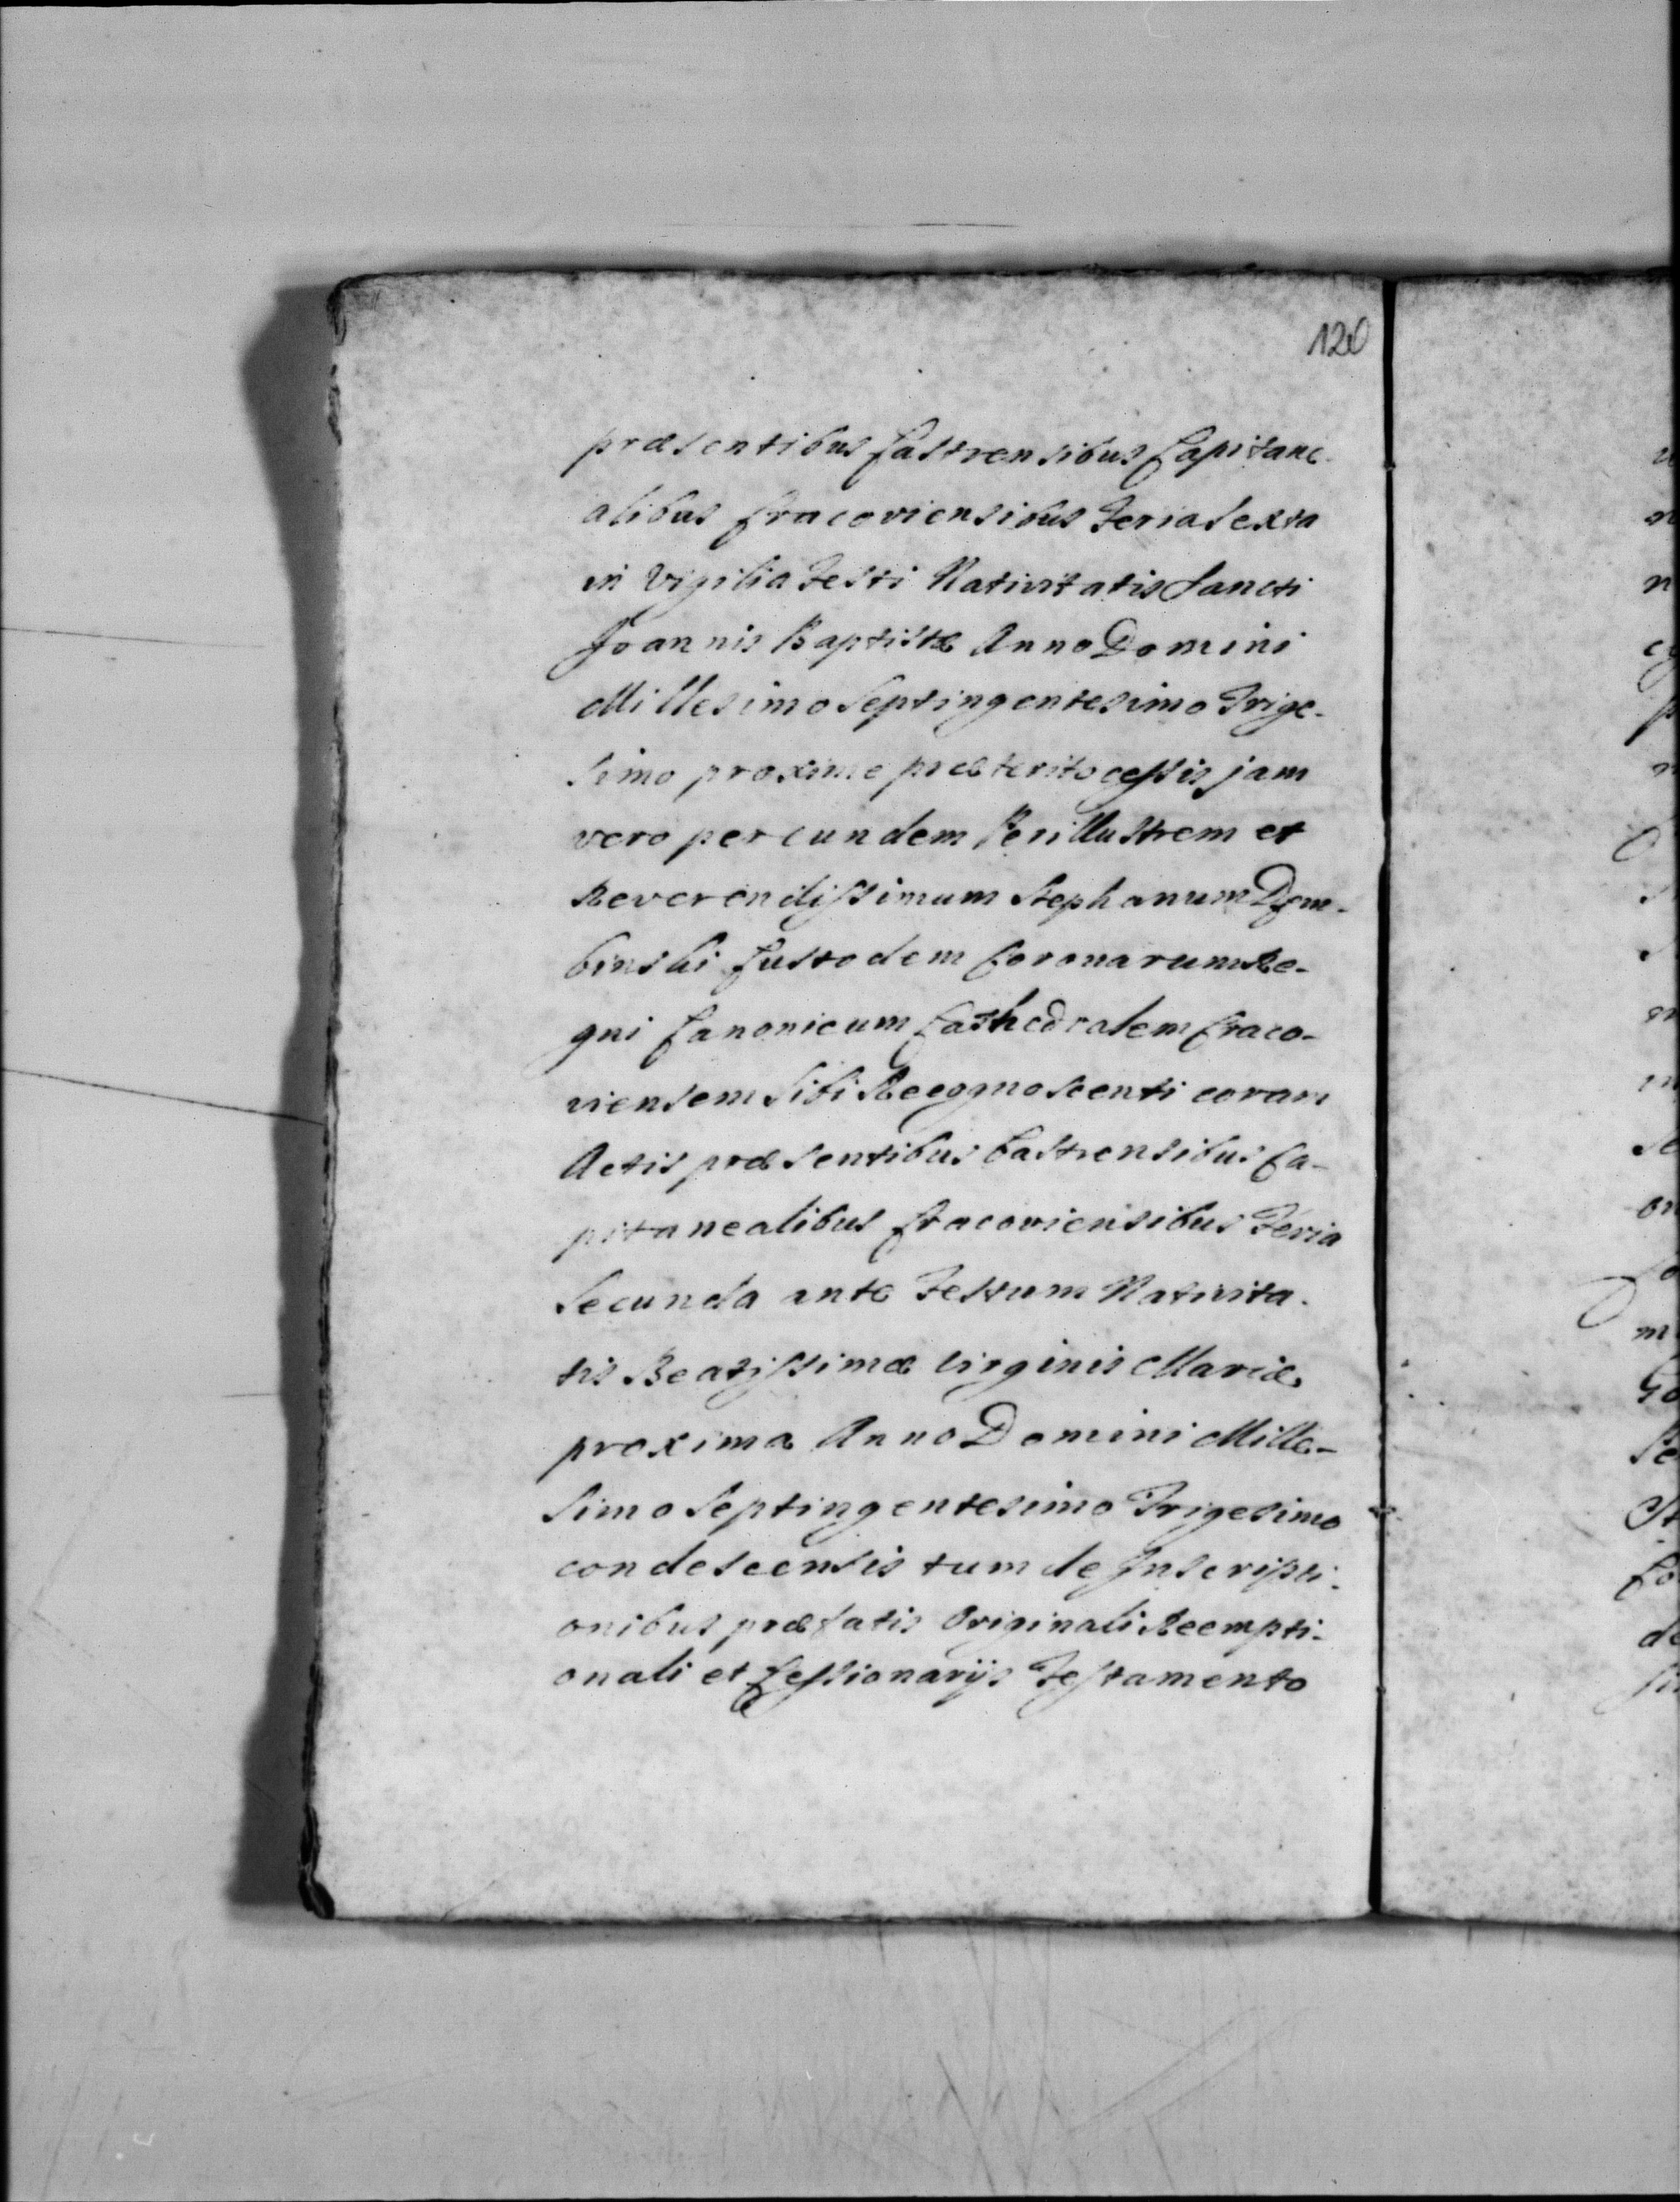 120
præsentibus Castrensibus Capitane-
alibus Cracoviensibus Feria Sexta
in Vigilia Festi Nativitatis Sancti
Joannis Baptistæ Anno Domini
Millesimo Septingentesimo Trige-
simo proxime præterito cessis jam
vero per eundem Perillustrem et
Reverendissimum Stephanum Dem-
binski Custodem Coronarum Re-
gni Canonicum Cathedralem Craco-
viensem sibi Recognoscenti coram
Actis præsentibus Castrensibus Ca-
pitanealibus Cracoviensibus Feria
Secunda ante Festum Nativita-
tis Beatissimæ Virginis Mariæ
proxima Anno Domini Mille-
simo Septingentesimo Trigesimo
condescensis tum de Inscripti-
onibus præfatis Originali Reempti-
onali et Cessionarijs Testamento